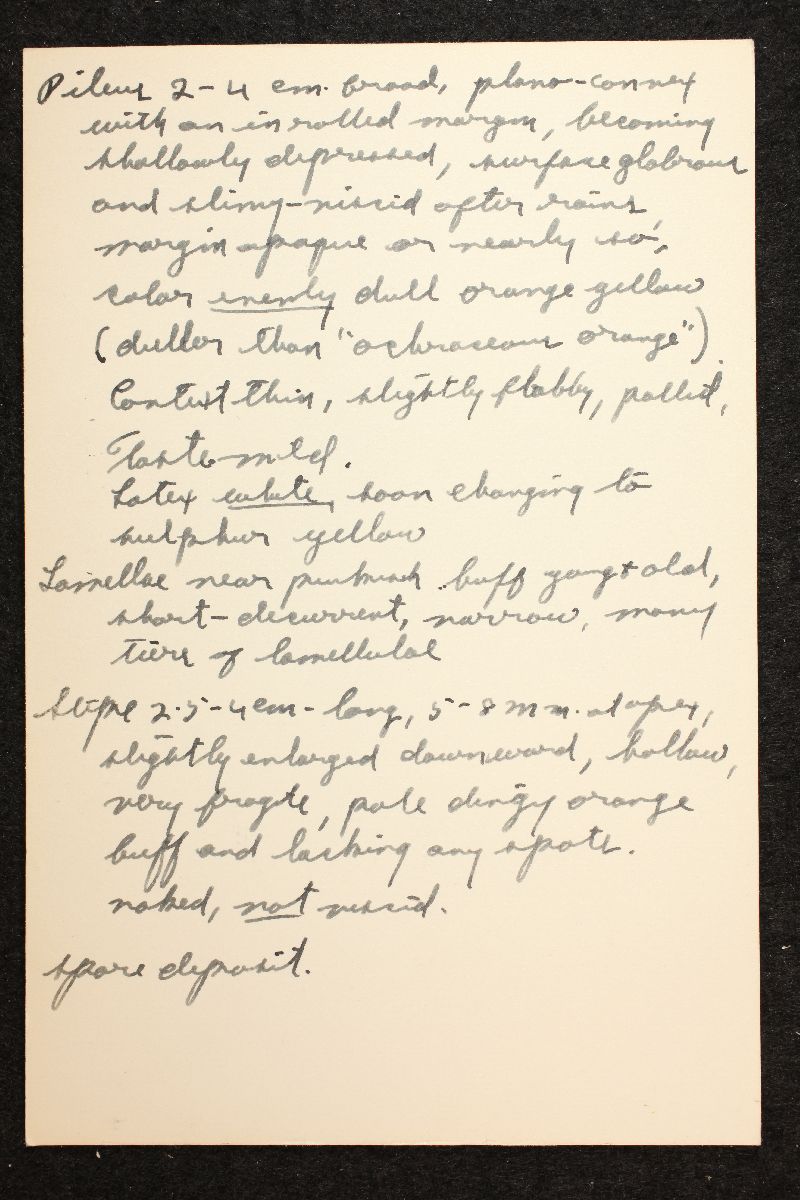 Pileus 2-4 cm. broad, plano-convex
with an inrolled margin, becoming
shallowly depressed, surface glabrous
and slimy-viscid after rains,
margin opaque or nearly so,
color evenly dull orange yellow
(duller than "ochraceous orange").
Context thin, slightly flabby, pallid,
Taste mild.
Latex white, soon changing to
sulphur yellow
Lamellae near pinkish buff yong & old,
short-decurrent, narrow, many
tiers of lamellulae
Stipe 2.5-4 cm- long, 5-8 mm. at apex,
slightly enlarged downward, hollow,
very fragile, pale dingy orange
buff and lacking any spots.
naked, not viscid.
spore deposit.